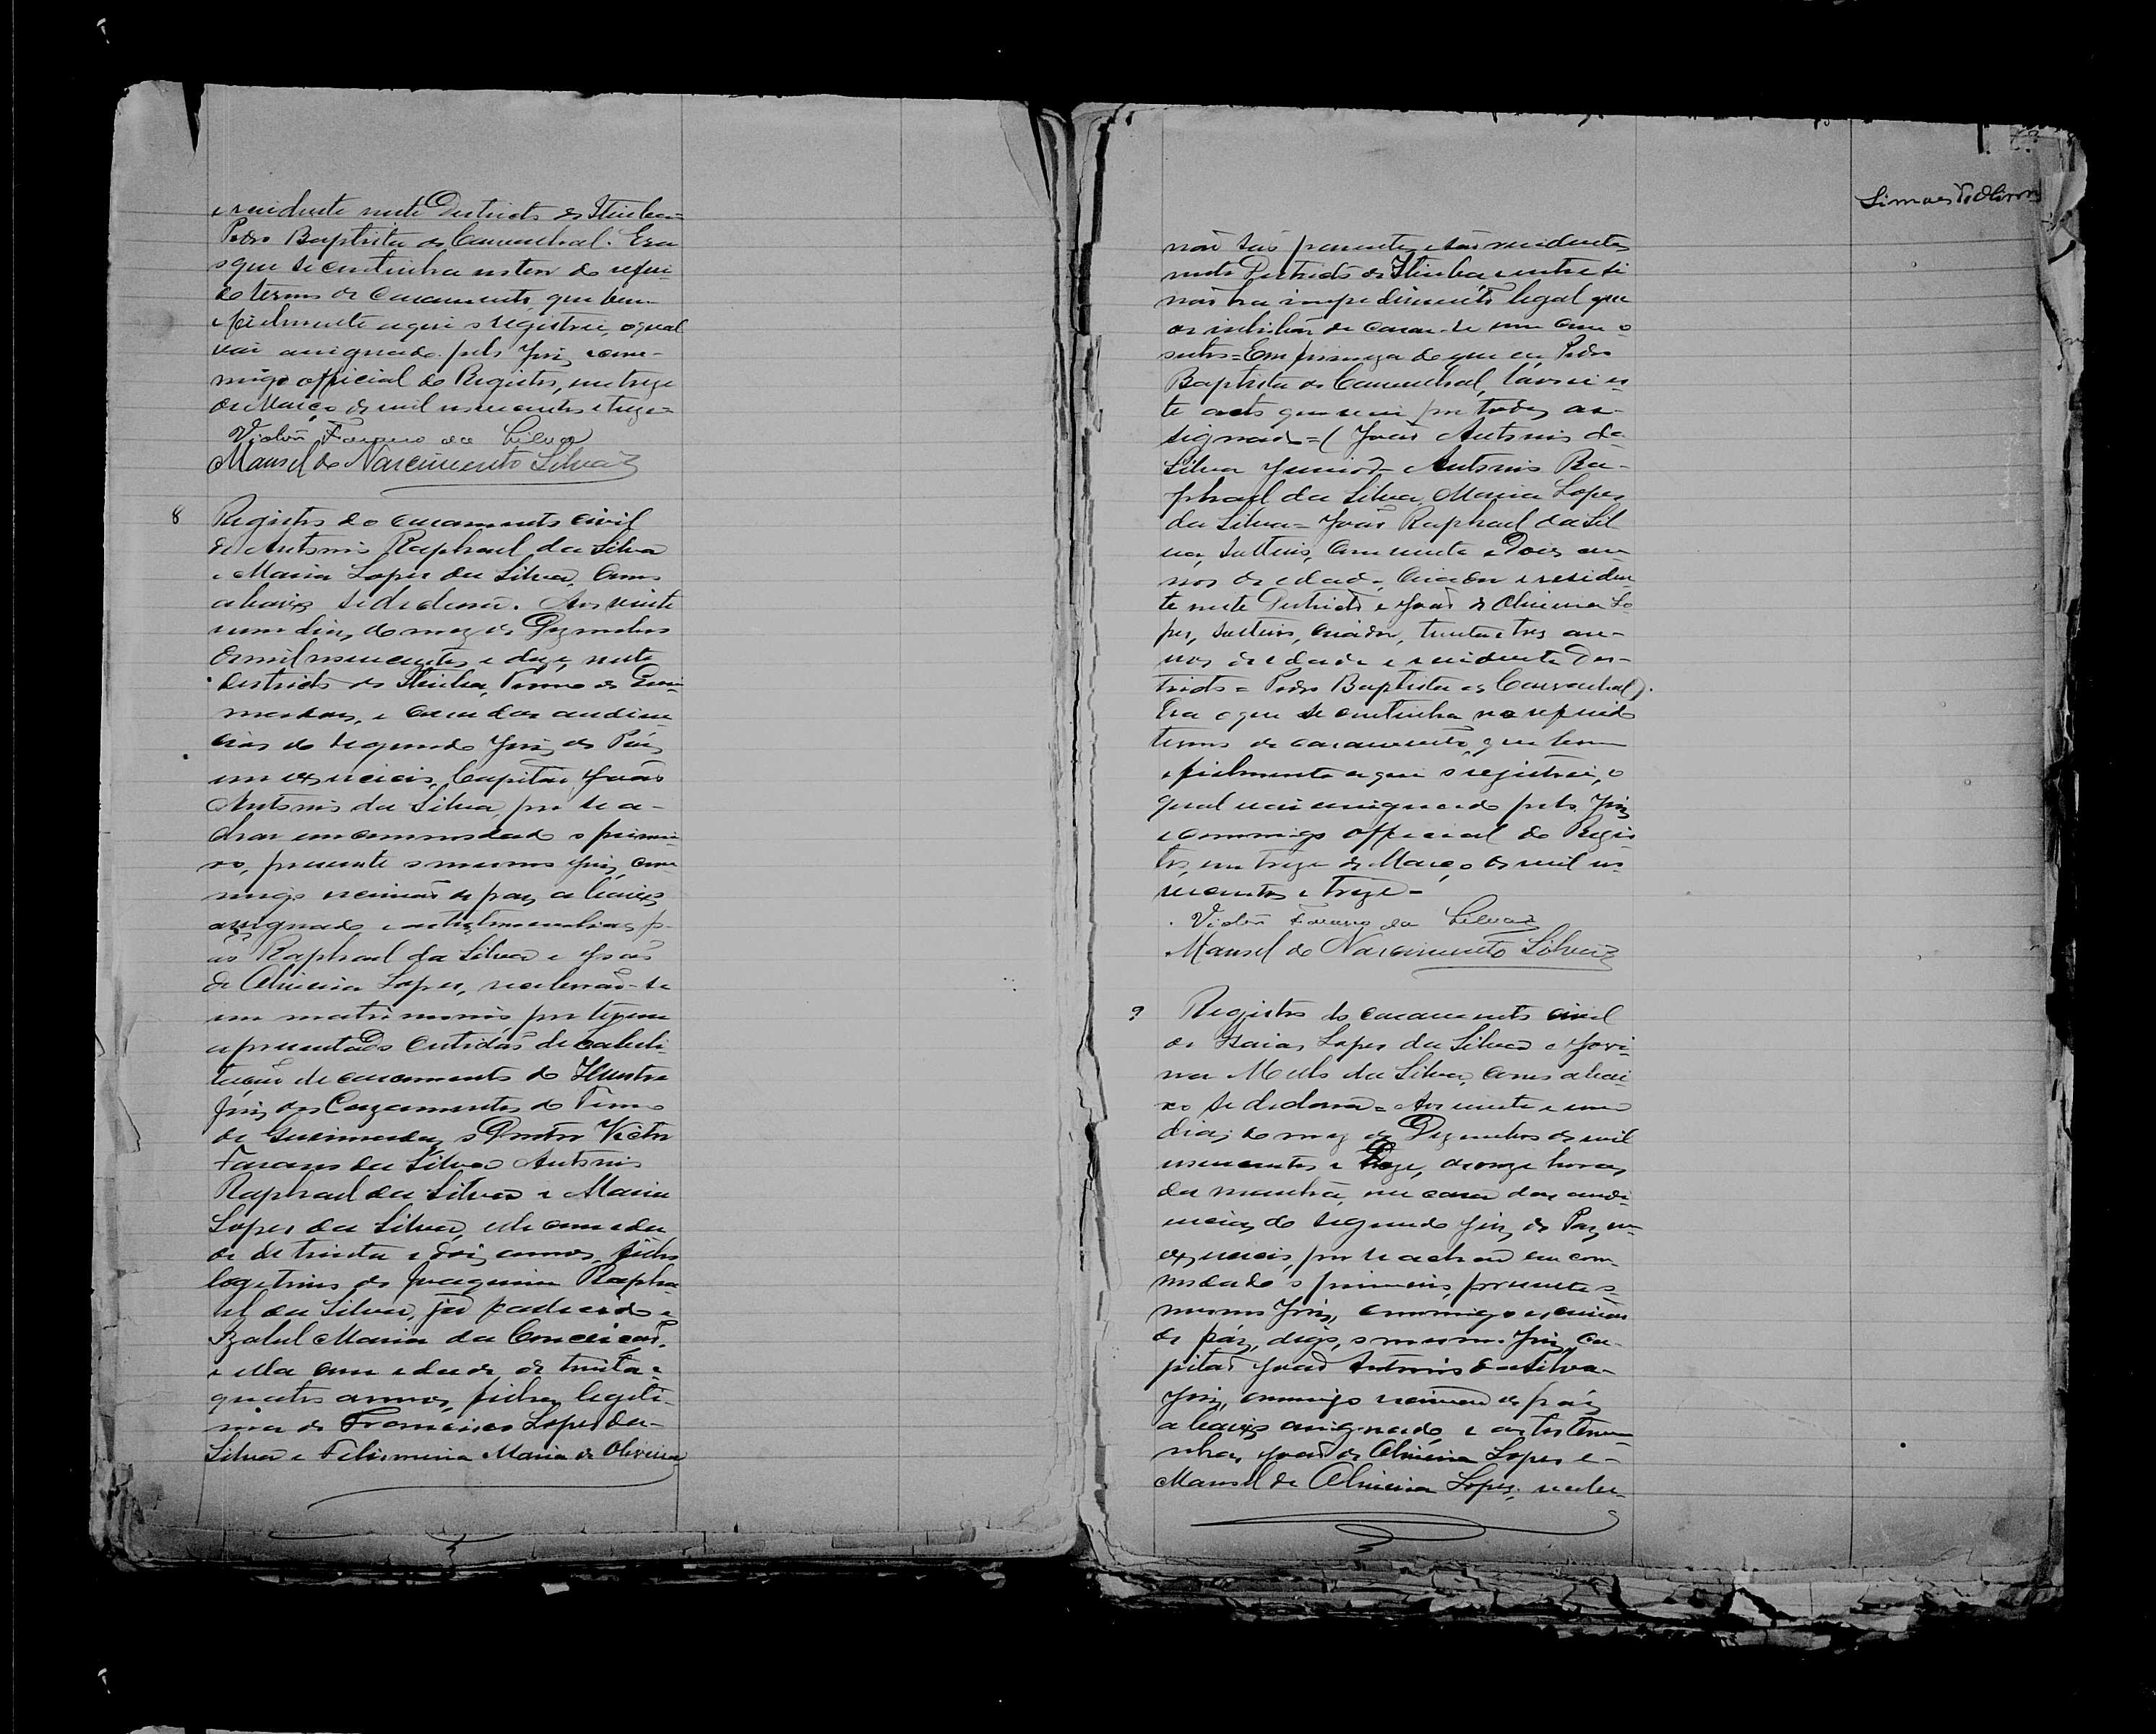 e residente neste Districto de Itiuba=
Pedro Baptista de Carvalhal. Era
o que se continha no teor do referi-
do termo de casamento, que bem
e fielmente aqui o registrei, o qual
vai assignado pelo Juiz com-
migo official do Registro, em treze
de Março de mil novecentos e treze=
Victor Farano da Silva
Manoel do Nascimento Silva
8 Registro do casamento civil
de Antonio Raphael da Silva
e Maria Lopes da Silva, como
abaixo se declara. Aos vinte
e um dias do mez de Dezembro
de mil novecentos e doze, neste
Districto de Itiuba, Termo de Quei-
madas, e casa das audien
cias do segundo Juiz de Paz
em exercicio, Capitão João
Antonio da Silva, por se a-
char encommodado o primei-
ro, presente o mesmo Juiz, com
migo escrivão de paz, abaixo
assignado e as testemunhas Jo-
ão Raphael da Silva e João
de Oliveira Lopes, receberão-se
em matrimonio, por terem
apresentado certidão de habili-
tação de casamento do Illustre
Juiz dos Cazamentos do Termo
de Queimadas, o Doutor Victor
Farano da Silva Antonio
Raphael da Silva e Maria
Lopes da Silva, elle com eda
de de trinta e dois annos, filho
legitimo de Joaquim Rapha-
el da Silva, já falecido e
Izabel Maria da Conceição,
e ella com edade de trinta e
quatro annos, filha legiti-
ma de Francisco Lopes da
Silva e Felismina Maria de Oliveira
Simões
não são parentes e são residentes
neste Districto de Itiuba e entre si
não ha impedimento legal que
os inhibão de casar-se um com o
outro=Em firmeza do que eu Pedro
Baptista de Carvalhal, lavrei es-
te acto que vai por todos as-
signado=(João Antonio da
Silva Junior= Antonio Ra-
phael da Silva, Maria Lopes
da Silva= João Raphael da Sil
va, solteiro, cincoenta e dois an
nos de edade, criador e residen
te neste Districto e João de Oliveira Lo
pes, solteiro, criador, trinta e tres an-
nos de edade e residente Dis-
tricto= Pedro Baptista de Carvalhal).
Era o que se continha no referido
termo de casamento, que bem
e fielmente aqui o registrei, o
qual vai assignado pelo Juiz
e commigo official do Regis
tro, em treze de Março de mil no
vecentos e treze=
Victor Farano da Silva
Manoel do Nascimento Silva
9 Registro do casamento civil
de Isaias Lopes da Silva e Jovi-
na Mello da Silva, como abai-
xo se declara= Aos vinte e um
dias do mez de Dezembro de mil
novecentos e Doze, as onze horas
da manhã, na casa das audi
encias do segundo Juiz de Paz em
exercicio, por se achar encom-
modado o primeiro, presente o
mesmo Juiz, commigo escrivão
de páz, digo, o mesmo Juiz, Ca-
pitão João Antonio da Silva-
Juiz, commigo escrivão de páz
abaixo assignado, e as testemu
nhas, João de Oliveira Lopes e-
Manoel de Oliveira Lopes, recebe-